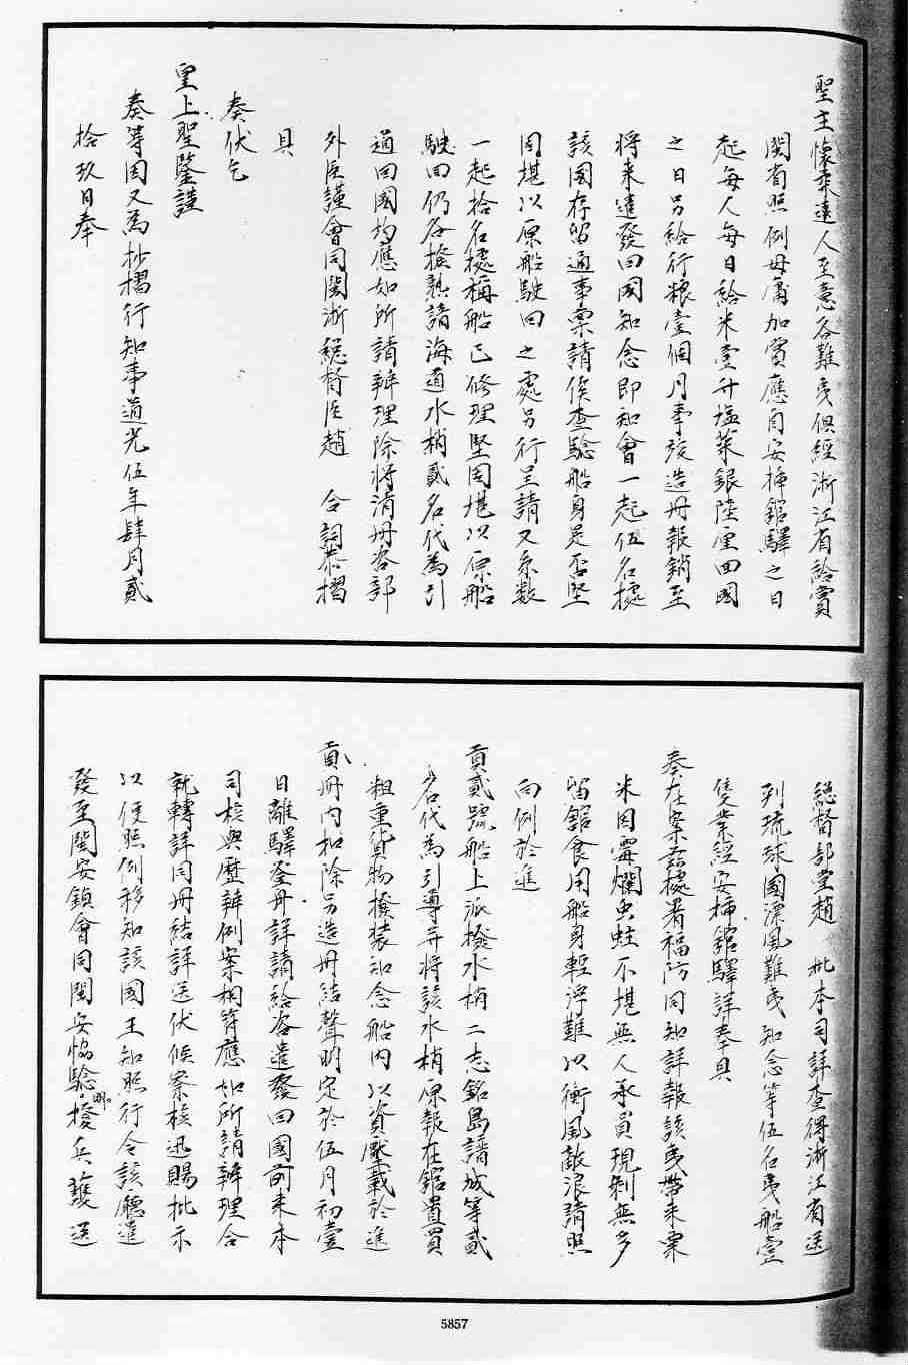 聖主懷柔遠人至意各難夷俱經浙江省給賞
閩省照例毋庸加賞應自安插館驛之日
起每人每日給米壹升塩菜銀陸厘回國
之日另給行粮壹個月事竣造冊報銷至
將來遣發回國知念即知會一起伍名據
該國存留通事稟請俟查驗船身是否堅
固堪以原船駛回之處另行呈請又系數
一起拾名據稱船已修理堅固堪以原船
駛回仍各撥熟諳海道水梢貳名代為引
道回國均應如所請辦理除將清冊咨部
外臣謹會同閩浙總督臣趙 合詞恭摺
具
奏伏乞
皇上聖鑒謹
奏等因又為抄摺行知事道光伍年肆月貳
拾玖日奉
總督部堂趙 批本司詳查得浙江省送
到琉球國漂風難夷知念等伍名夷船壹
隻業經安插館驛詳奉具
奏在案茲據署福防同知詳報該夷帶來粟
米因霉爛虫蛀不堪無人承買現剩無多
留館食用船身輕浮難以衝風敵浪請照
向例於進
貢貳號船上派撥水梢二志銘島諸城等貳
名代為引導并將該水梢原報在館置買
粗重貨物撥裝知念船內以資壓載於進
貢冊內扣除另造冊結聲明定於伍月初壹
日離驛登舟詳請給咨遣發回國前來本
司核與歷辦例案相符應如所請辦理合
就轉詳同冊結詳送伏候察核迅賜批示
以便照例移知該國王知照行令該廳遣
發至閩安鎮會同閩安協驗明撥兵護送
5857